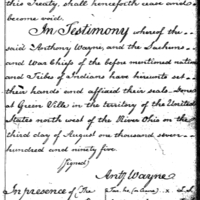 this Treaty, shall henceforth cease and
become void.
In Testimony whereof the
said Anthony Wayne, and the Sachems
and War Chiefs of the before mentioned nations
and Tribes of Indians have hereunto set
their hands and affixed their seals. Done
at Green Ville, in the territory of the United
States north west of the River Ohio on the
third day of August one thousand seven
hundred and ninety five.
(Signed)
Anty Wayne
In presence of (The